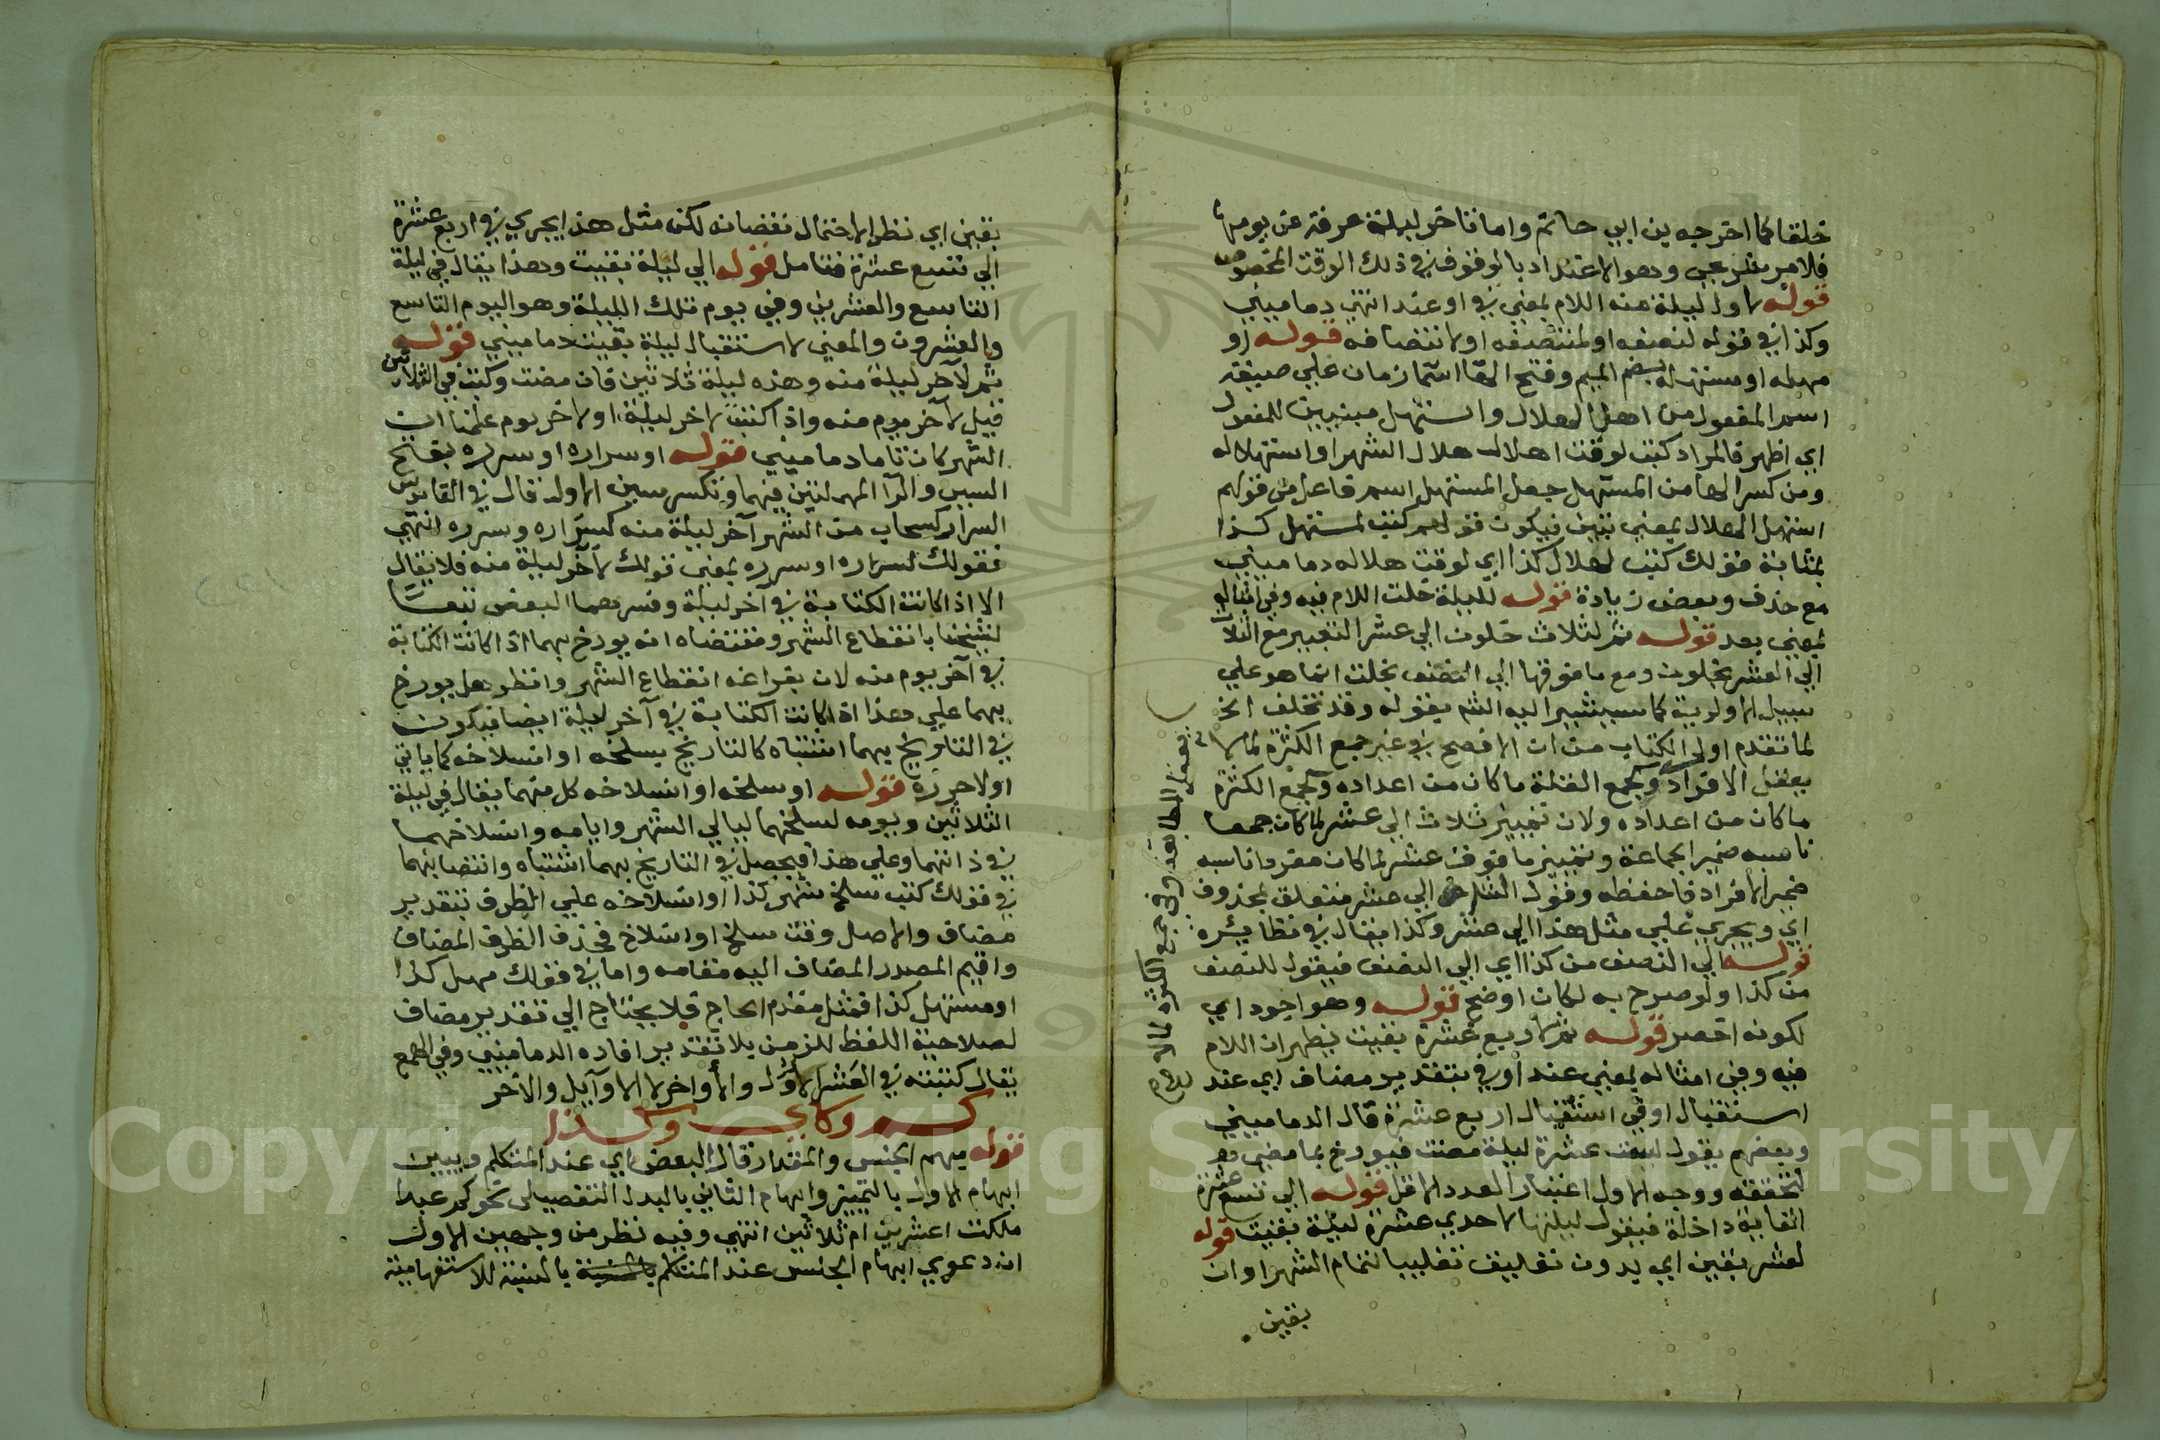 خلقا كما اخرجه بن ابي حاتم واما تاخر ليلة عرفة عن يومها
فلامر شرعي وهو الاعتداد بالوقوف في ذلك الوقت المخصوص
قوله لاول ليلة منه اللام بمعنى في او عند انتهى دماميني
وكذا في قوله لنصفه او لمنتصفه او لانتصافه قوله او
مهله او مستهله بضم الميم وفتح الها اسما زمان على صيغة
اسم المفعول من اهل الهلال واستهل مبنيين للمفعول
اي اظهر فالمراد كتب لوقت اهلال هلال الشهر او استهلاله
ومن كسر الها من المستهل جعل المستهل اسم فاعل من قولهم
استهل الهلال بمعنى تبين فيكون قولهم كتب لمستهل كذا
بمثابة قولك كتب لهلال كذا اي لوقت هلاله دماميني
مع حذف وبعض زيادة قوله لليلة خلت اللام فيه وفي امثاله
بمعنى بعد قوله ثم لثلاث خلون الى عشر التعبير مع الثلاث
الى العشر بخلون ومع ما فوقها الى النصف بخلت انما هو على
سبيل الاولوية كما سيشير اليه الشم بقوله وقد تخلف الخ
لما تقدم اول الكتاب من ان الافصح في غير جمع الكثرة لما لا
يعقل الافراد وجمع القلة ما كان من اعداده وجمع الكثرة
ما كان من اعداده ولان تمييز ثلاث الى عشر لما كان جمعا
ناسبه ضمير الجماعة وتمييز ما فوق عشر لما كان مفردا ناسبه
ضمير الافراد فاحفظه وقول الشارح الى عشر متعلق بمحذوف
اي ويجري على مثل هذا الى عشر وكذا يقال في نظائره
قوله الى النصف من كذا اي الى النصف فيقول للنصف
من كذا ولو صرح به لكان اوضح قوله وهو اجود اي
لكونه اخصر قوله ثم لاربع عشرة بقيت يظهر ان اللام
فيه وفي امثاله بمعنى عند او في بتقدير مضاف اي عند
استقبال او في استقبال اربع عشرة قال الدماميني
وبعضهم يقول لست عشرة ليلة مضت فيورخ بما مضى
لتحققه ووجه الاول اعتبار العدد الاقل قوله الى تسع عشرة
الغاية داخلة فيقول ليلتها لاحدى عشرة ليلة بقيت قوله
لعشر بقين اي بدون تغليب تغليبا لتمام الشهر اوان
بقين
يعقل المطابقة وفي جمع الكثرة لما لا
بقين اي نظرا لاحتمال نقصانه لكن مثل هذا يجري في اربع عشرة
الى تسع عشرة فتامل قوله الى ليلة بقيت وهذا يقال في ليلة
التاسع والعشرين وفي يوم تلك الليلة وهو اليوم التاسع
والعشرون والمعنى لاستقبال ليلة بقيت دماميني قوله
ثم لآخر ليلة منه وهذه ليلة ثلاثين فان مضت وكتب في الثلاثين
قيل لآخر يوم منه واذا كتبت لاخر ليلة او لاخر يوم علمنا ان
الشهر كان تاما دماميني قوله او سراره او سرره بفتح
السين والرا المهملتين فيهما وتكسر سين الاول قال في القاموس
السرار كسحاب من الشهر آخر ليلة منه كسراره وسرره انتهى
فقولك لسراره او سرره بمعنى قولك لآخر ليلة منه فلا يقال
الا اذا كانت الكتابة في آخر ليلة وفسرهما البعض تبعا
لشيخنا بانقطاع الشهر ومقتضاه انه يورخ بهما اذا كانت الكتابة
في آخر يوم منه لان بفراغه انقطاع الشهر وانظر هل يورخ
بهما على هذا اذا كانت الكتابة في آخر ليلة ايضا فيكون
في التاريخ بهما اشتباه كالتاريخ بسلخه او انسلاخه كما ياتي
اولا حرره قوله او سلخه او انسلاخه كل منهما يقال في ليلة
الثلاثين ويومه لسلخهما ليالي الشهر وايامه وانسلاخهما
في ذاتهما وعلى هذا فيحصل في التاريخ بهما اشتباه وانتصابهما
في قولك كتب سلخ شهر كذا او انسلاخه على الظرف بتقدير
مضاف والاصل وقت سلخ او انسلاخ فحذف الظرف المضاف
واقيم المصدر المضاف اليه مقامه واما في قولك مهل كذا
او مستهل كذا فمثل مقدم الحاج فلا يحتاج الى تقدير مضاف
لصلاحية اللفظ للزمن بلا تقدير افاده الدماميني وفي الهمع
يقال كتبته في العشر الاول والاواخر لا الاوآيل والاخر
كم وكاي وكذا
قوله مبهم الجنس والمقدار قال البعض اي عند المتكلم ويبين
ابهام الاول بالتمييز وابهام الثاني بالبدل التفصيلي نحو كم عبدا
ملكت اعشرين ام ثلاثين انتهى وفيه نظر من وجهين الاول
ان دعوى ابهام الجنس عند المتكلم بالنسبة للاستفهامية